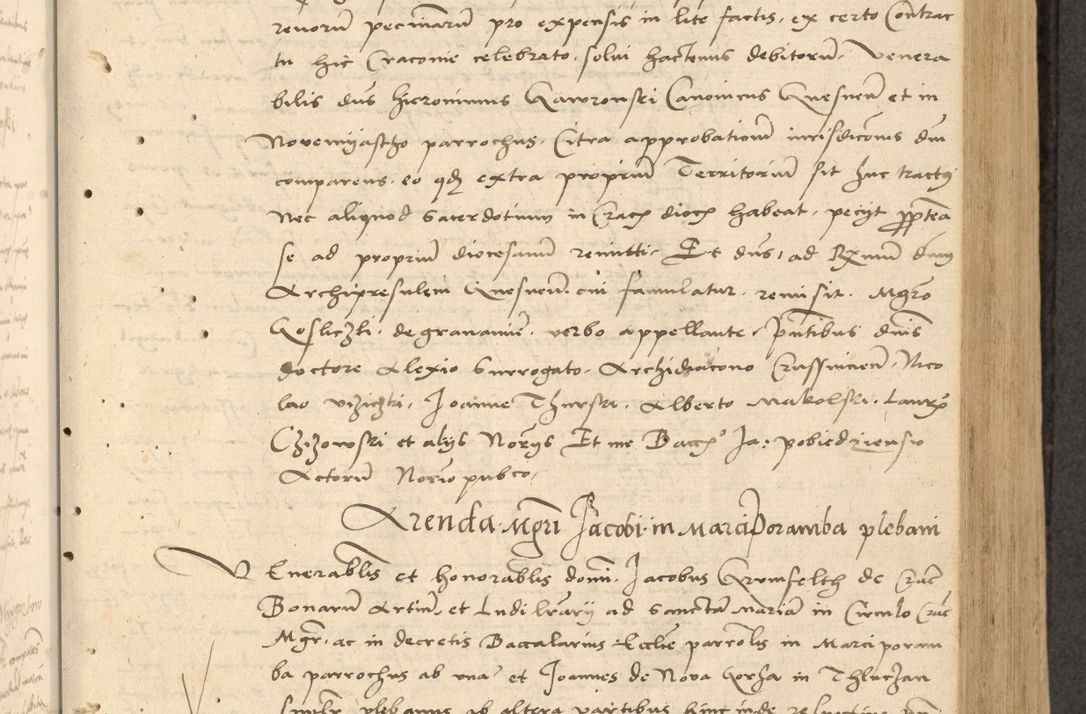 renorū pecuniarū pro expensis in lite factis, ex certo Contrac
tu hic Cracovie celebrato, solui hactenus debitorū. Venera
bilis dn̄s Hieronimus Gawronski Canonicus Gnesnen̄ et in
Novemyasto parrochus, Citra approbationē iurisdicōnis dn̄i
comparens, eo qd extra propriū Territoriū sit huc tractus
Nec aliquod Sacerdotium in Crac dioc habeat, peciit propterea
se ad propriū diocesanū remitti. Et dn̄s, ad Rxmū dn̄m
Archipresulem Gnesnen̄ cui famulatur, remisit. Mgrō
Goslicżki, de gravamine, verbo appellante, Pn̄tibus dn̄is
doctore Alexio Surrogato, Archidiacono Crassvicien̄, Nico
lao Vizichti, Joanne Thurski, Alberto Makolski, Laurē
Cżiżowski et alijs Norijs Et me Baccō Ja: pobiedziensio
Actorū Norio pubco,
Arenda Mgri Jacobi in Marciporamba plebani
Venerabiles et honorabiles domī, Jacobus Gromfelth de Crac
Bonarū Artiū, et Ludi lrarij ad Sanctā Mariā in Circulo Crac
Mgr, ac in decretis Baccalarius Ecclie parrolis in Marciporam
ba parrochus ab una et Joannes de Nova Gorha in Thluchan
similr plebanus ab altera partibus hincinde